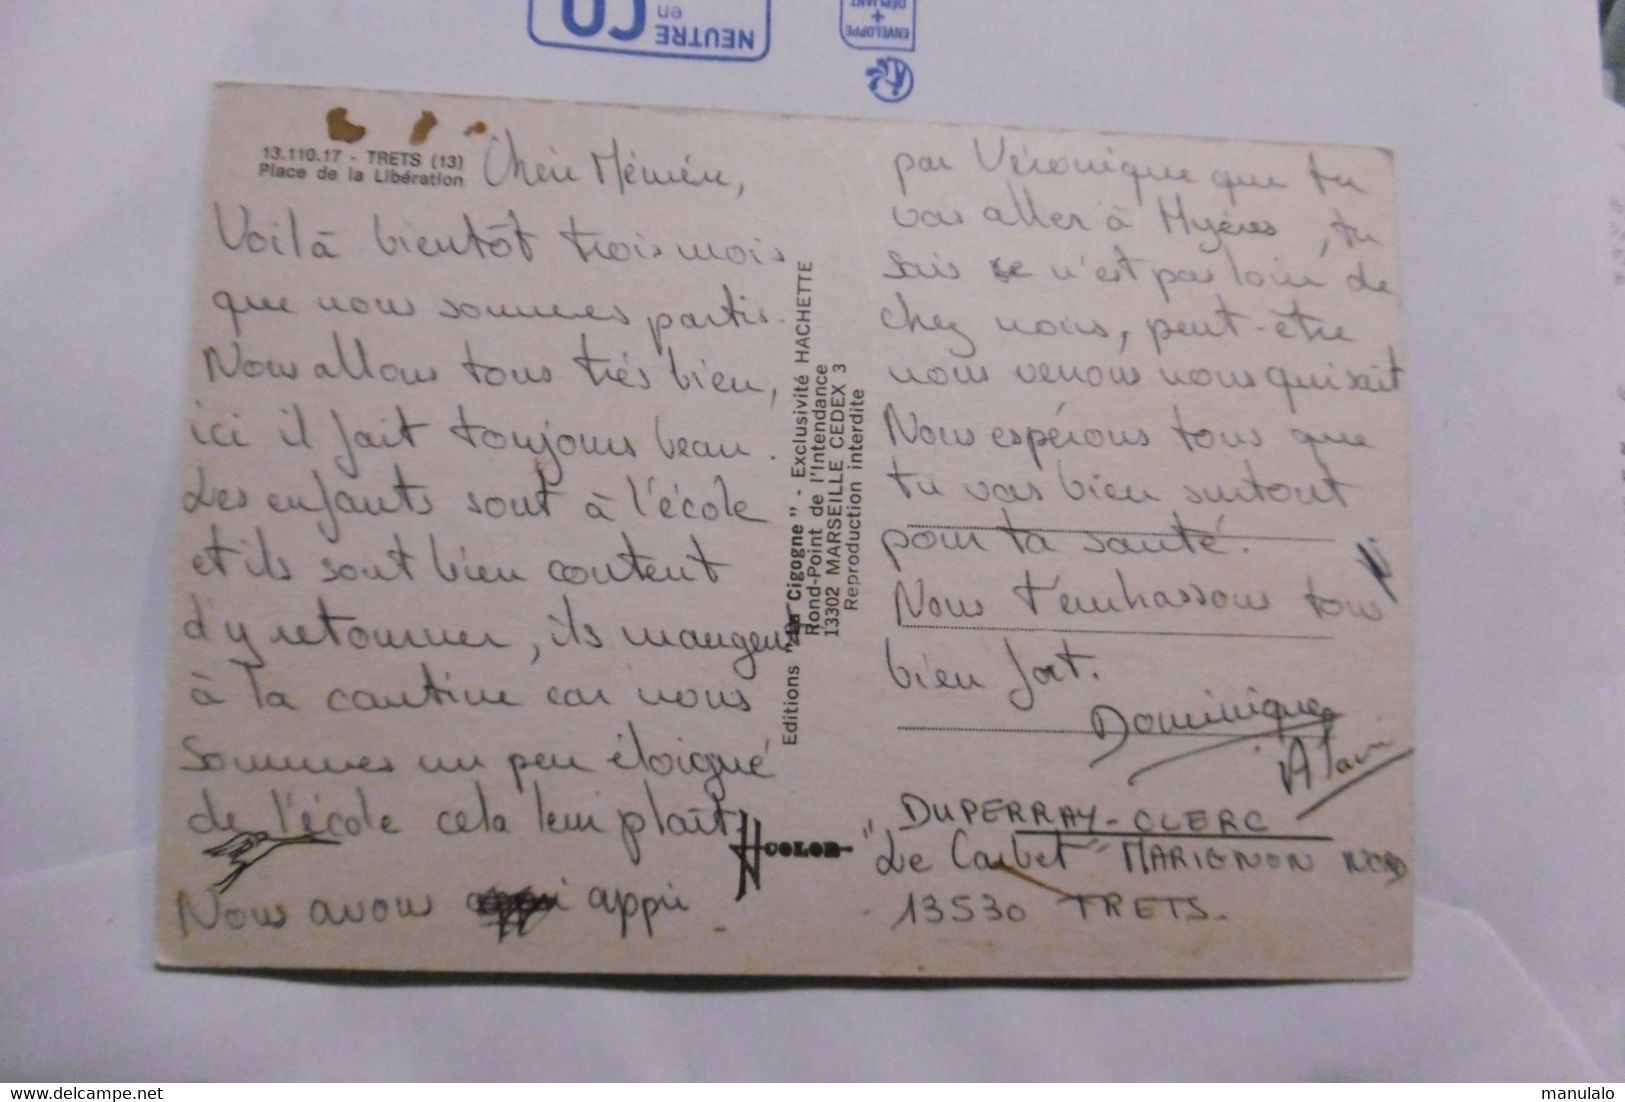 NEUTRE
en
CO
ENVELOPPE
+
DÉPLIANT
13.110.17 - TRETS (13)
Place de la Libération
Chère Mémère,
Voilà bientôt trois mois
que nous sommes partis.
Nous allons tous très bien,
ici il fait toujours beau.
Les enfants sont à l'école
et ils sont bien content
d'y retourner, ils mangent
à la cantine car nous
sommes un peu éloigné
de l'école cela leur plaît.
Nous avons appri
Editions "La Cigogne" - Exclusivité HACHETTE
Rond-Point de l'Intendance
13302 MARSEILLE CEDEX 3
Reproduction interdite
COLOR
par Véronique que tu
vas aller à Hyères, tu
sais ce n'est pas loin de
chez nous, peut-être
nous venons nous qui sait
Nous espérons tous que
tu vas bien surtout
pour ta santé.
Nous t'embrassons tous
bien fort.
Dominique
Alain
DUPERRAY-CLERC
"Le Carbet" MARIGNON NORD
13530 TRETS.
manulalo